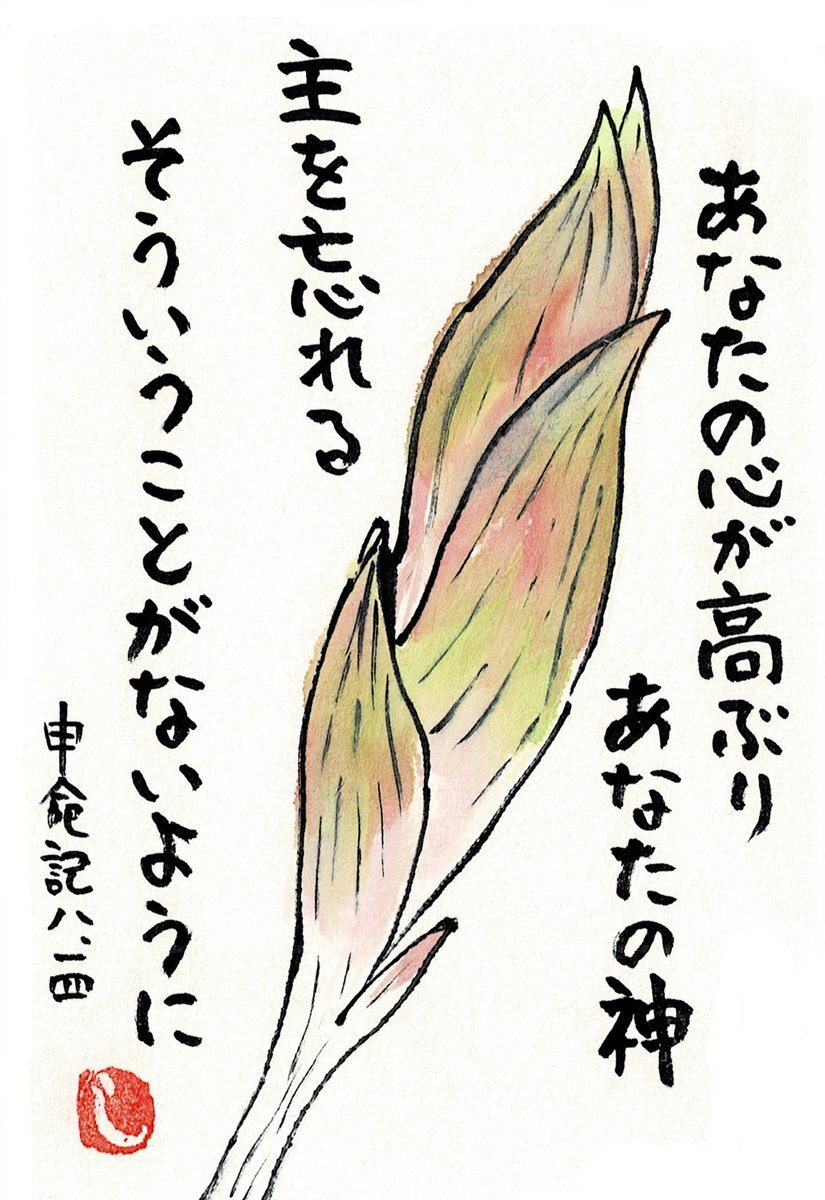 あなたの心が高ぶり
あなたの神
主を忘れる
そういうことがないように
申命記八、一四
し